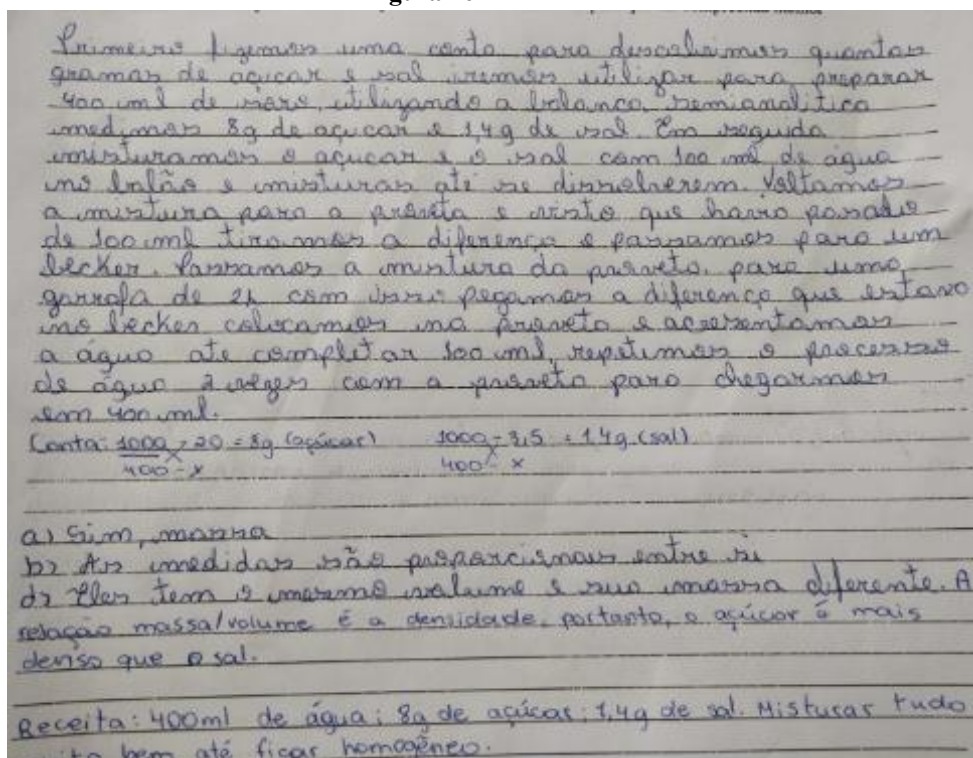 Primeiro fizemos uma conta para descobrirmos quantas
gramas de açúcar e sal iremos utilizar para preparar
400 ml de soro, utilizando a balança semianalítica
medimos 8g de açúcar e 1,4g de sal. Em seguida
misturamos o açúcar e o sal com 100 ml de água
no balão e misturas até se dissolverem. Voltamos
a mistura para a proveta e visto que havia passado
de 100 ml tiramos a diferença e passamos para um
becker. Passamos a mistura da proveta, para uma
garrafa de 2L com isso pegamos a diferença que estava
no becker colocamos na proveta e acrescentamos
a água até completar 100 ml, repetimos o processo
de água 2 vezes com a proveta para chegarmos
em 400 ml.
Conta: 1000 - 20 = 8g (açúcar) 1000 - 3,5 = 1,4g (sal)
400 - x 400 - x
a) Sim, massa
b) As medidas são proporcionais entre si
d) Eles tem o mesmo volume e sua massa diferente. A
relação massa/volume é a densidade, portanto, o açúcar é mais
denso que o sal.
Receita: 400ml de água; 8g de açúcar; 1,4g de sal. Misturar tudo
bem até ficar homogêneo.